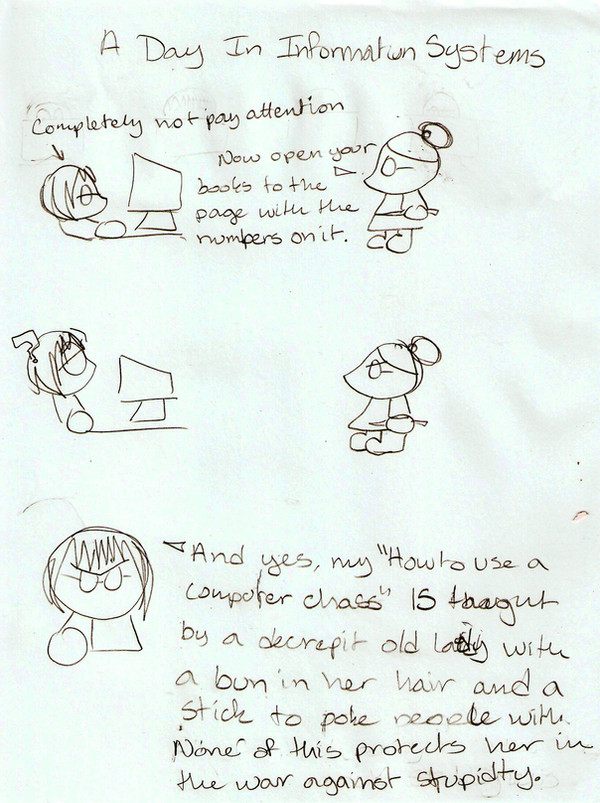 A Day In Information Systems
Completely not pay attention
Now open your
books to the
page with the
numbers on it.
?
And yes, my "How to use a
computer class" IS taught
by a decrepit old lady with
a bun in her hair and a
stick to poke people with.
None of this protects her in
the war against stupidty.